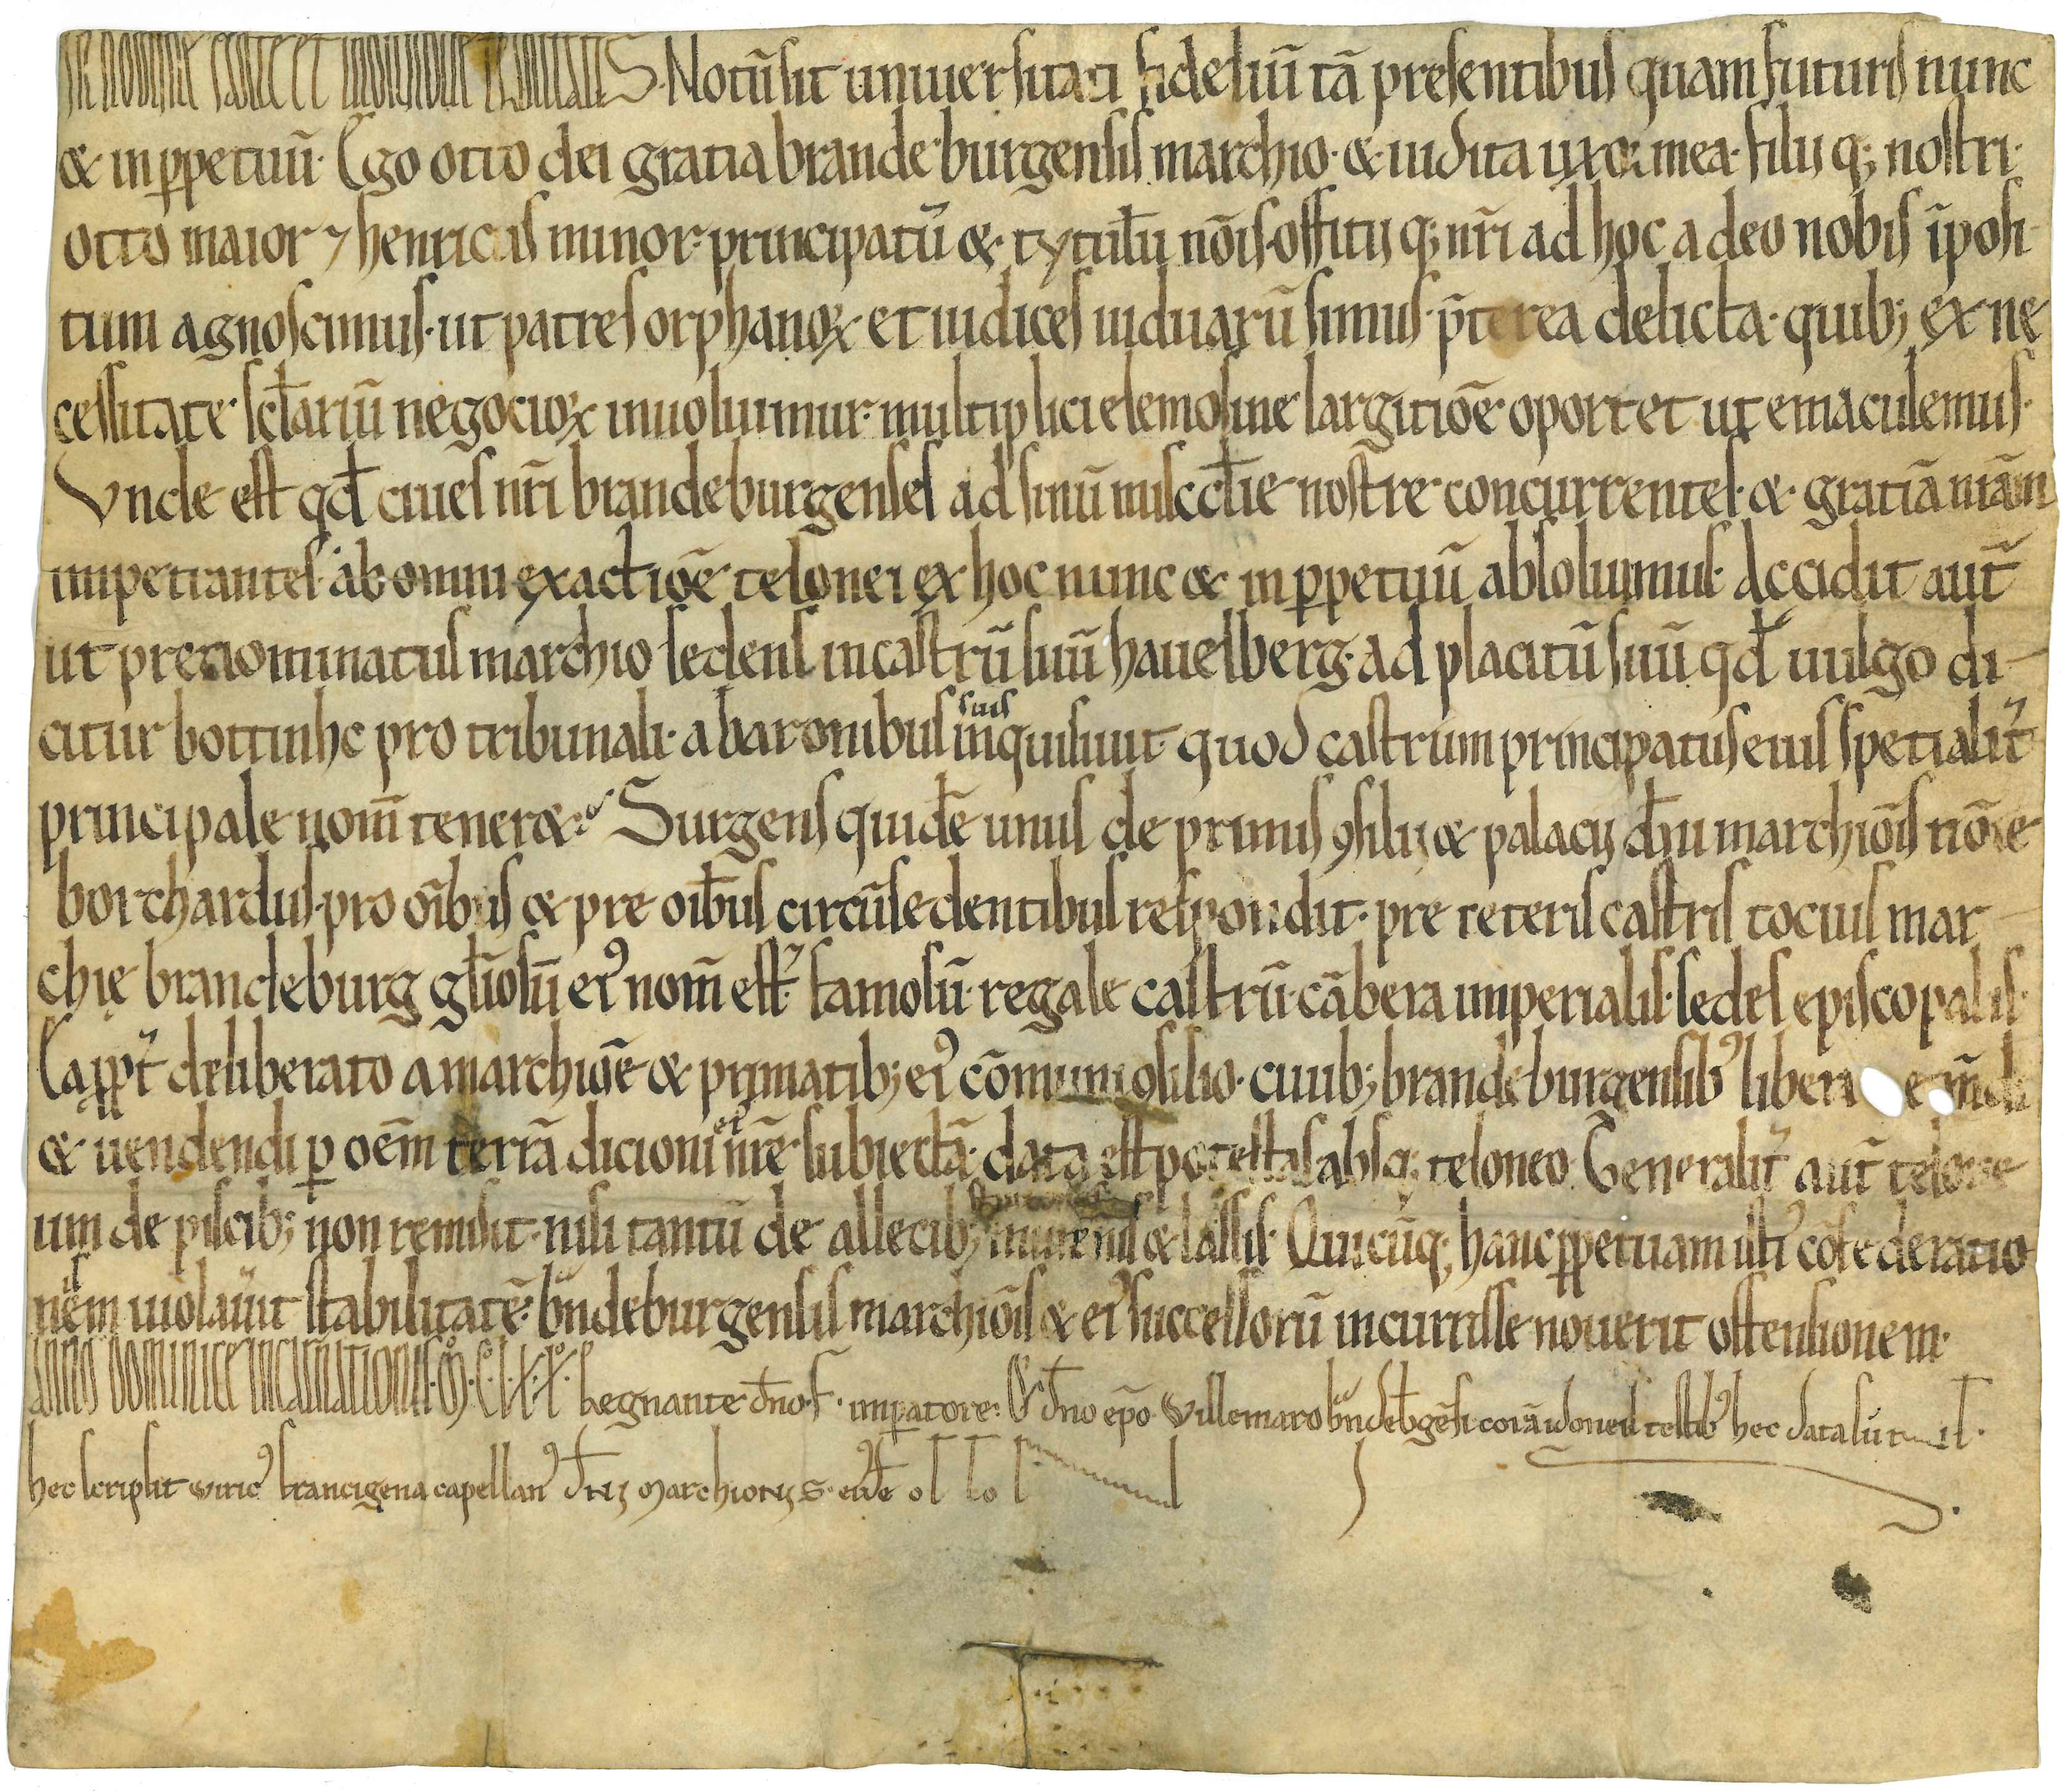 IN NOMINE SANCTE ET INDIVIDUE TRINITATIS. Notū sit uniuersitati fideliū tā presentibus quam futuris nunc
& in ꝑpetuū. Ego otto dei gratia brandeburgensis marchio. & iudita uxor mea. filii q; nostri.
otto maior ⁊ henricus minor. principatū & tytulū nōis. offitii q; nr̄i ad hoc a deo nobis īposi
tum agnoscimus. ut patres orphanoꝝ et iudices uiduarū simus. p̄terea delicta. quib; ex ne
cessitate sclariū negocioꝝ inuoluimur. multiplici elemosine largitiōe oportet ut emaculemus.
Vnde est qđ ciues nr̄i brandeburgenses ad sinū misccłie nostre concurrentes. & gratiā nr̄am
impetrantes. ab omni exactiōe telonei ex hoc nunc & in ꝑpetuū absoluimus. Accidit aut̄
ut prenominatus marchio sedens in castrū suū hauelberg. ad placitū suū qđ uulgo di-
citur bottinhc pro tribunali. a baronibus suis inquisiuit quod castrum principatus eius spetialit̄
principale nom̄ tener&. Surgens quidē unus de primis ꝯsilii & palacii dn̄i marchiōis nōīe
borchardus. pro oīb̄us & pre oīb̄us circūsedentibus respondit. pre ceteris castris tocius mar-
chię brandeburg gl̄iosū eiꝰ nom̄ est. famosū. regale castrū. cābera imperialis. sedes episcopalis.
Eapp̄t deliberato a marchiōe & primatib; eiꝰ cōmuni ꝯsilio. ciuib; brandeburgensibꝰ libera em̄di
& uendendi ꝑ oēm terrā dicioni eiꝰ nr̄e subiectā. data est potestas absq; teloneo. Generalit̄ aut̄ telone
um de piscib; non remisit. nisi tantū de allecib; murenis & lassis. Quicūq; hanc ꝑpetuam isti cōfederatio
nis uiolau̅it stabilitatē. br̄ndeburgensis marchiōis & eiꝰ successorū incurrisse nouerit offensionem.
ANNO DOMINICE INCARNATIONIS. M. C. L. X. X. Regnante dn̄o. f. imꝑatore. & dn̄o ep̄o Willemaro br̄ndeb̄gēsi. corā idoneis testibꝰ hec data sūt
hec scripsit viricꝰ francigena capellanꝰ dn̄i marchionis